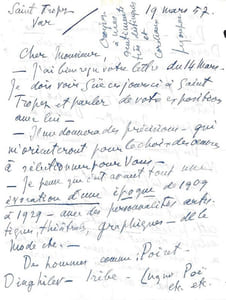 Saint Tropez
Var
19 mars 57.
Croyez
à mes
sentiments
très
et
Cher Monsieur,
— J'ai bien reçu votre lettre du 14 Mars.
Je dois voir ces jours-ci à Saint
Tropez et parler de votre exposition
avec lui —
— Il me donnera des précisions — qui
m'orienteront pour le choix des œuvres
à sélectionner pour vous —
— Je pense qu'il est avant tout une
évocation d'une époque de 1909
à 1929 — avec des personnalités artis-
tiques, théâtrales, graphiques — de la
mode etc. —
Des hommes comme Poiret
Diaghilev — Iribe — Lugné Poe
etc. etc.